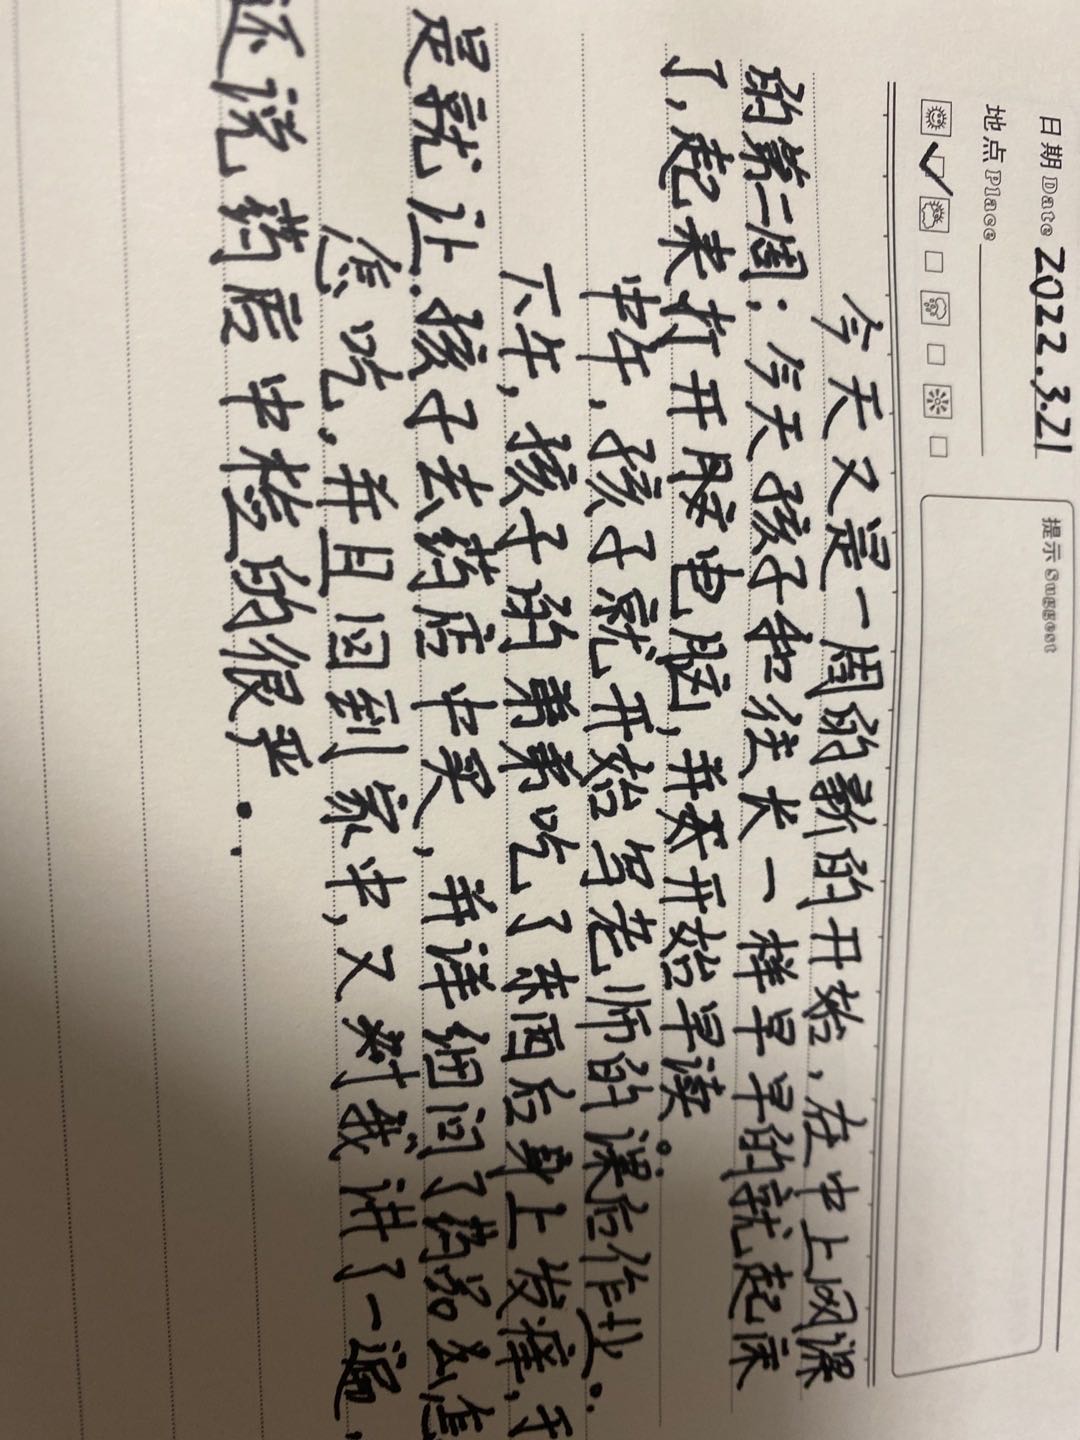 日期 Date 2022.3.21
地点 Place
提示 Suggest
今天又是一周的新的开始,在中上网课
的第二周;今天孩子和往长一样早早的就起床
了,起来打开脑电脑,并开始早读。
中午,孩子就开始写老师的课后作业。
下午,孩子的弟弟吃了东西后身上发痒,于
是就让孩子去药店中买,并详细问了药名怎
怎吃,并且回到家中,又对我讲了一遍,
还说药店中检的很严.